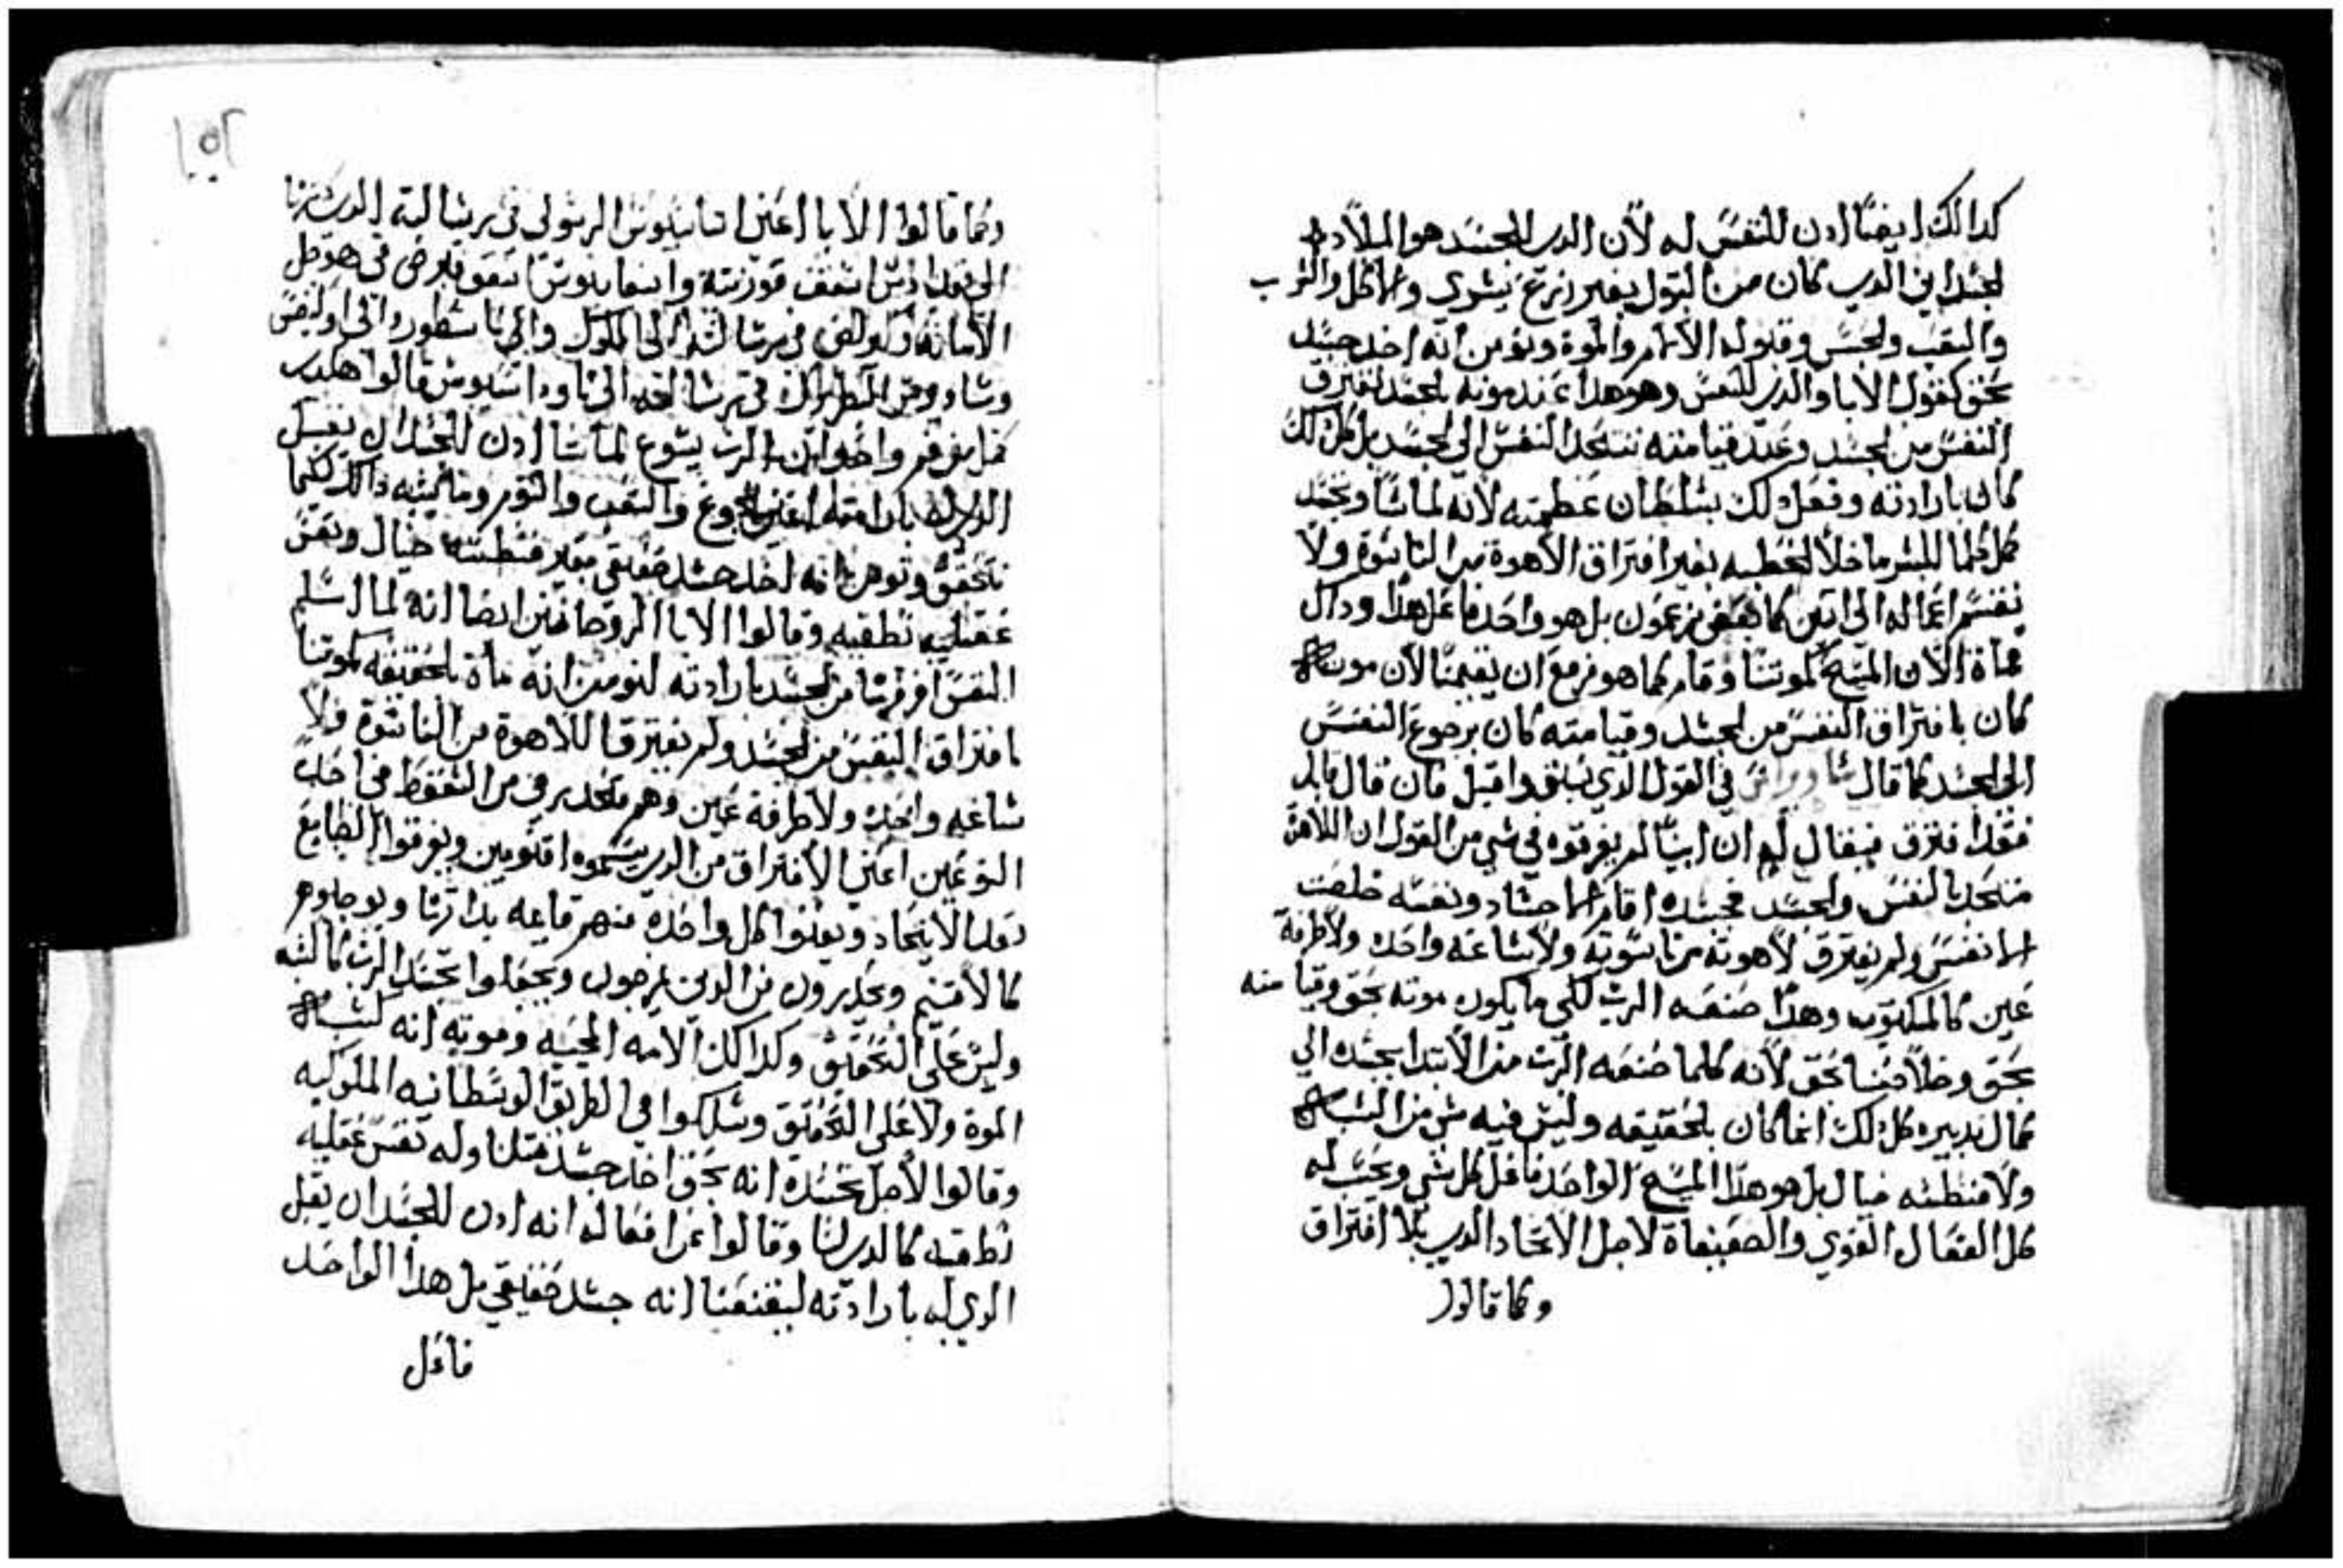 كدالك ايضا ادن للنفس له لان الدى للجسد هو الميلاد
لجسداني الدي كان من البتول بغير زرع بشري والاكل والشرب
والتعب ولحبس وقبوله الالام والموة ونومن انه اخد جسد
بحق كقول الابا والدى للنفس وهو هدا عند موته بالجسد تفترق
النفس من لجسد وعند قيامته تتحد النفس الى لجسد بل كل دلك
كان بارادته وفعل دلك بسلطان عظمته لانه لما شا وتجسد
كمل كلما للبشر ما خلا لخطيه بغير افتراق الاهوة من الناسوة ولا
نقسم اعماله الى اتنين كما بعض يزعمون بل هو واحد فاعل هدا وداك
مماة الان المسيح كموتنا وقام كما هو مزمع ان يقيمنا لان موت
كان بافتراق النفس من لجسد وقيامته كان برجوع النفس
الى لجسد كما قال ساويرس في القول الدي سبق واقيل فان قال قايل
فقد افترق فيقال لهم ان ابينا لم يفرقوه في شي من القول ان اللاهوة
متحد بالنفس ولجسد فجسده اقام اجساد ونفسه خلصت
انفس ولم يفترق لاهوته من ناسوته ولا ساعه واحده ولا طرفة
عين كالمكتوب وهدا صنعه الرب لكي ما يكون موته بحق وقيامته
بحق وخلاصنا بحق لانه كلما صنعه الرب من الابتدا بجسده الي
كمال تدبيره كل دلك انما كان بالحقيقه وليس فيه شي من الشبه
ولا فنطسه خيال بل هو هدا المسيح الواحد فاعل كل شي ويحسب له
كل الفعال القوي والضعيفاة لاجل الاتحاد الدي بلا افتراق
وكما قالوا
١٥٢
وكما قالوا الابا اعني اتناسيوس الرسولي في رسالية الدي كتبها
الى اسقف قورنتيه وابيفانيوس اسقف قبرص في
الامانه وكيرلس في رسالته الى الملوك والى ناسطور والى اوليقس
وساويرس البطريرك في رسالته الى تاوداسيوس قالوا هكدى
كمل بفرقم واحد ان الرب يسوع لما شا ادن للجسد ان يفعل
الدى له بارادته اعني الجوع والتعب والنوم وما يشبه دالك لكيما
نتحقق ونومن انه اخد جسد حقيقي بغير فنطسة خيال ونفس
عقليه نطقيه وقالوا الابا الروحانيين ايضا انه لما اسلم
النفس افرزها من لجسد بارادته لنومن انه ماة بالحقيقه كموتنا
بافتراق النفس من لجسد ولم يفترق اللاهوة من الناسوة ولا
ساعه واحده ولا طرفة عين وهم متحدرين من السقوط في احد
النوعين اعني الافتراق من الدي يسموه اقنومين ويفرقوا الطبايع
بعد الاتحاد ويعنوا كل واحده منهم قايمه بداتها ويوجدوهم
كالاقنيم ويحدرون من الدين يمزجون ويجعلوا تجسد الرب كالشبه
وليس على التحقيق وكدالك الامه المحييه وموته انه لشبه
الموة ولا على التحقيق وسلكوا في الطريق الوسطانيه الملوكيه
وقالوا لاجل تجسده انه بحق اخد جسد متلنا وله نفس عقليه
نطقيه كالدى لنا وقالوا عن افعاله انه ادن للجسد ان يقبل
الدي له بارادته ليقنعنا انه جسد حقيقي بل هدا الواحد
فاعل